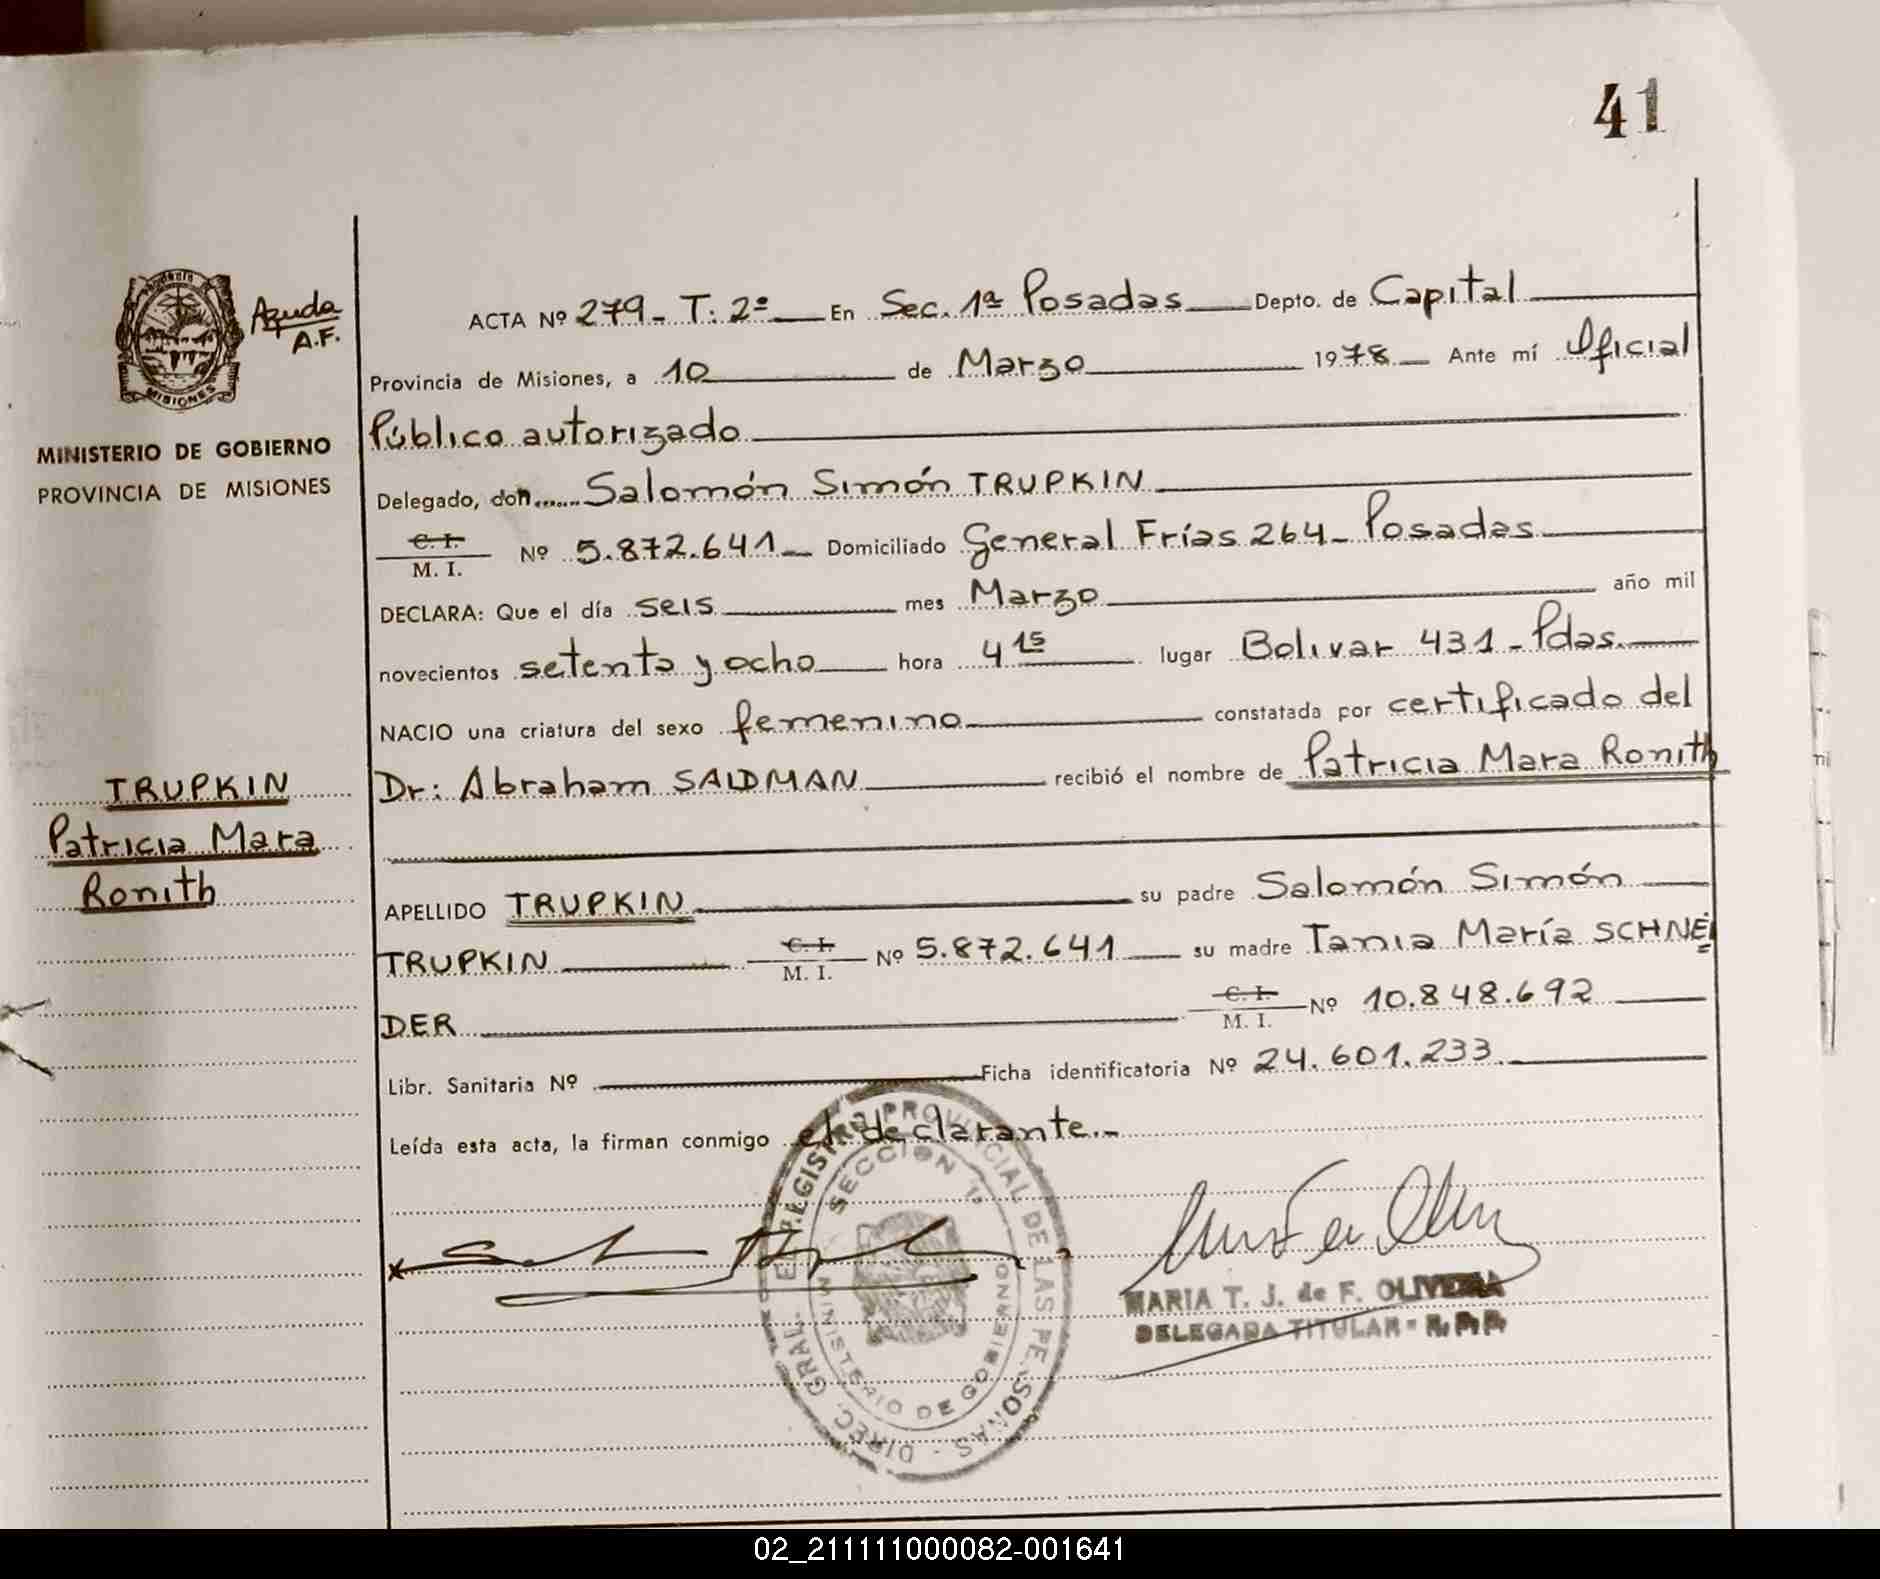 41
Ayuda
A.F.
MISIONES
MINISTERIO DE GOBIERNO
PROVINCIA DE MISIONES
TRUPKIN
Patricia Mara
Ronith
ACTA Nº 279 - T: 2º En Sec. 1ª Posadas Depto. de Capital
Provincia de Misiones, a 10 de Marzo 1978 Ante mí Oficial
Público autorizado
Delegado, don Salomón Simón TRUPKIN
C. I.
M. I. Nº 5.872.641 Domiciliado General Frías 264 - Posadas
DECLARA: Que el día seis mes Marzo año mil
novecientos setenta y ocho hora 4 15 lugar Bolivar 431 - Pdas.
NACIO una criatura del sexo femenino constatada por certificado del
Dr: Abraham SALDMAN recibió el nombre de Patricia Mara Ronith
APELLIDO TRUPKIN su padre Salomón Simón
TRUPKIN C. I. M. I. Nº 5.872.641 su madre Tania María SCHNEI
DER C. I. M. I. Nº 10.848.692
Libr. Sanitaria Nº Ficha identificatoria Nº 24.601.233
Leída esta acta, la firman conmigo el declarante.-
DIREC. GRAL. REGISTRO PROVINCIAL DE LAS PERSONAS
SECCION 1ª
MINISTERIO DE GOBIERNO
MARIA T. J. de F. OLIVERA
DELEGADA TITULAR - R.P.P.
02_211111000082-001641